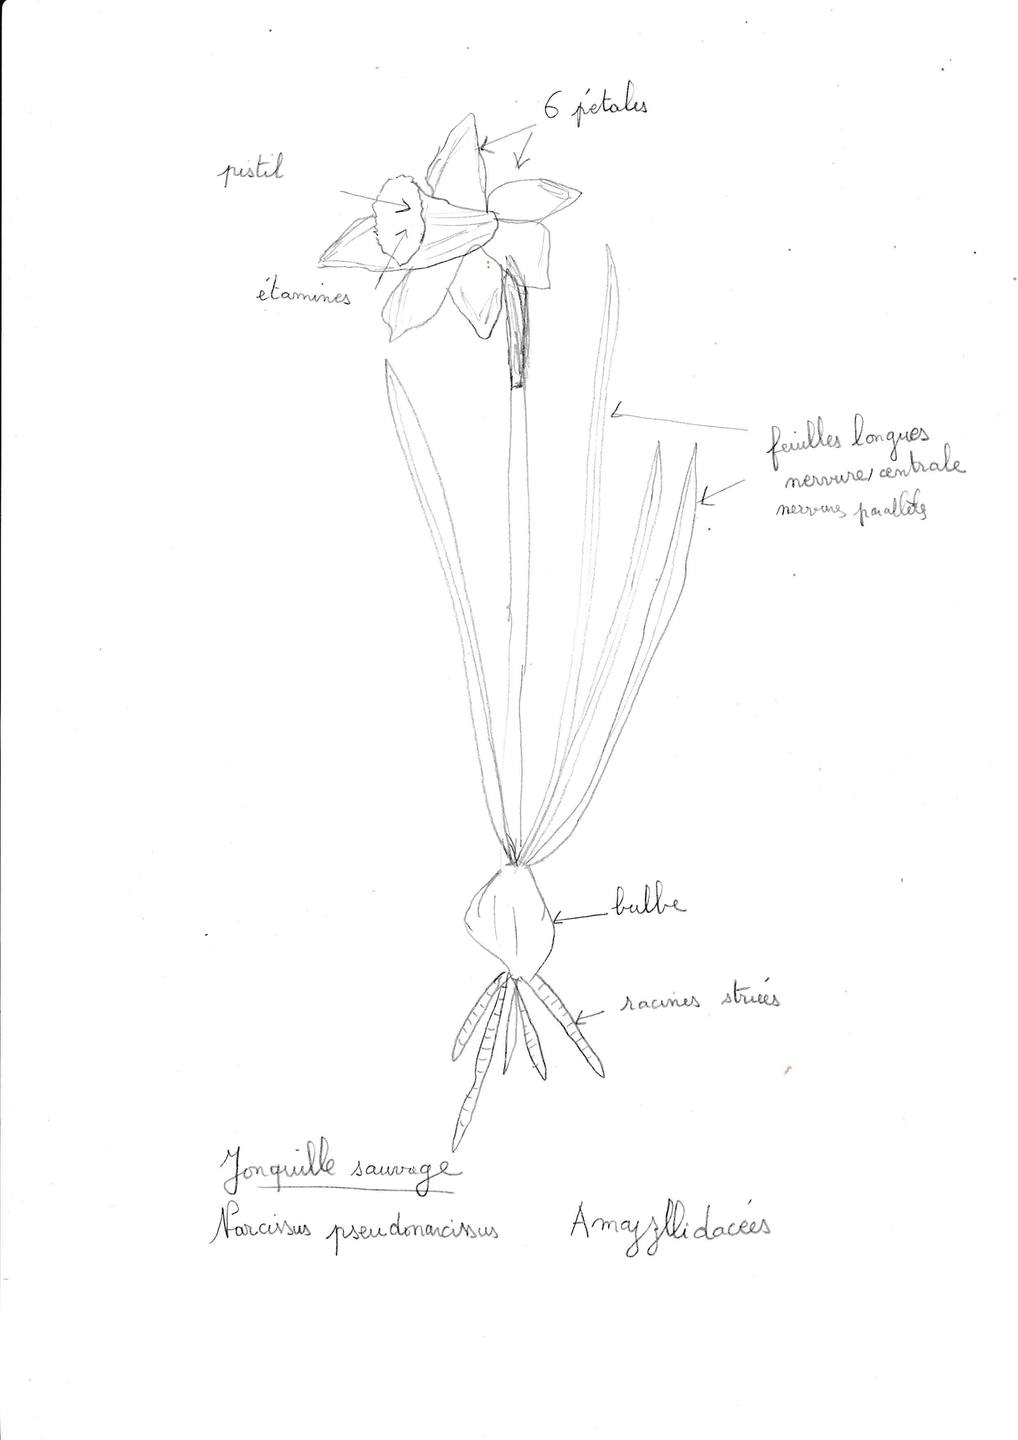 6 pétales
pistil
étamines
feuilles longues
nervure centrale
nervures parallèles
bulbe
racines striées
Jonquille sauvage
Narcissus pseudonarcissus
Amayzllidacées